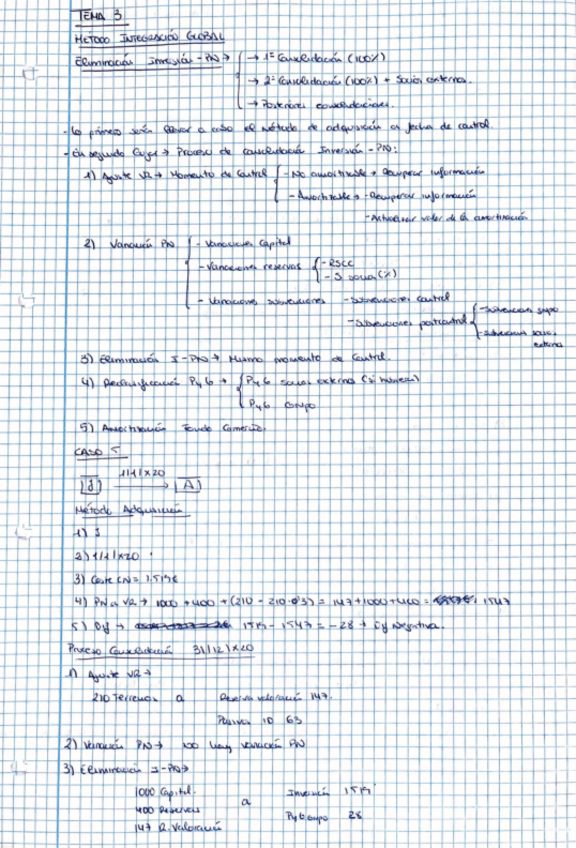 TEMA 3
METODO INTEGRACIÓN GLOBAL
Eliminación Inversión - PN → → 1ª Consolidación (100%)
→ 2ª Consolidación (100%) + Socios externos.
→ Posteriores consolidaciones.
- Lo primero será llevar a cabo el método de adquisición en fecha de control.
- En segundo lugar → Proceso de consolidación Inversión - PN:
1) Ajuste VR → Momento de Control - No amortizable → Recuperar información
- Amortizable → - Recuperar información
- Actualizar valor de la amortización
2) Variación PN - Variaciones Capital
- Variaciones reservas - RSCC
- S socia (%)
- Variaciones subvenciones - Subvenciones control
- Subvenciones postcontrol - Subvención grupo
- Subvención socio externo
3) Eliminación I - PN → Mismo momento de Control.
4) Reclasificación PyG → PyG socio externo (si hubiera)
PyG Grupo
5) Amortización Fondo Comercio.
CASO 5
J 1/1/X20 → A
Método Adquisición
1) J
2) 1/1/X20
3) Coste CN = 1.519€
4) PN a VR → 1000 + 400 + (210 - 210·0'3) = 147 + 1000 + 400 = 1547
5) Dif → 1519 - 1547 = -28 → Dif Negativa.
Proceso Consolidación 31/12/X20
1) Ajuste VR →
210 Terrenos a Reserva valoración 147.
Pasivo ID 63
2) Variación PN → no hay variación PN
3) Eliminación I - PN →
1000 Capital. Inversión 1519
400 Reservas a
147 R. Valoración PyG Grupo 28